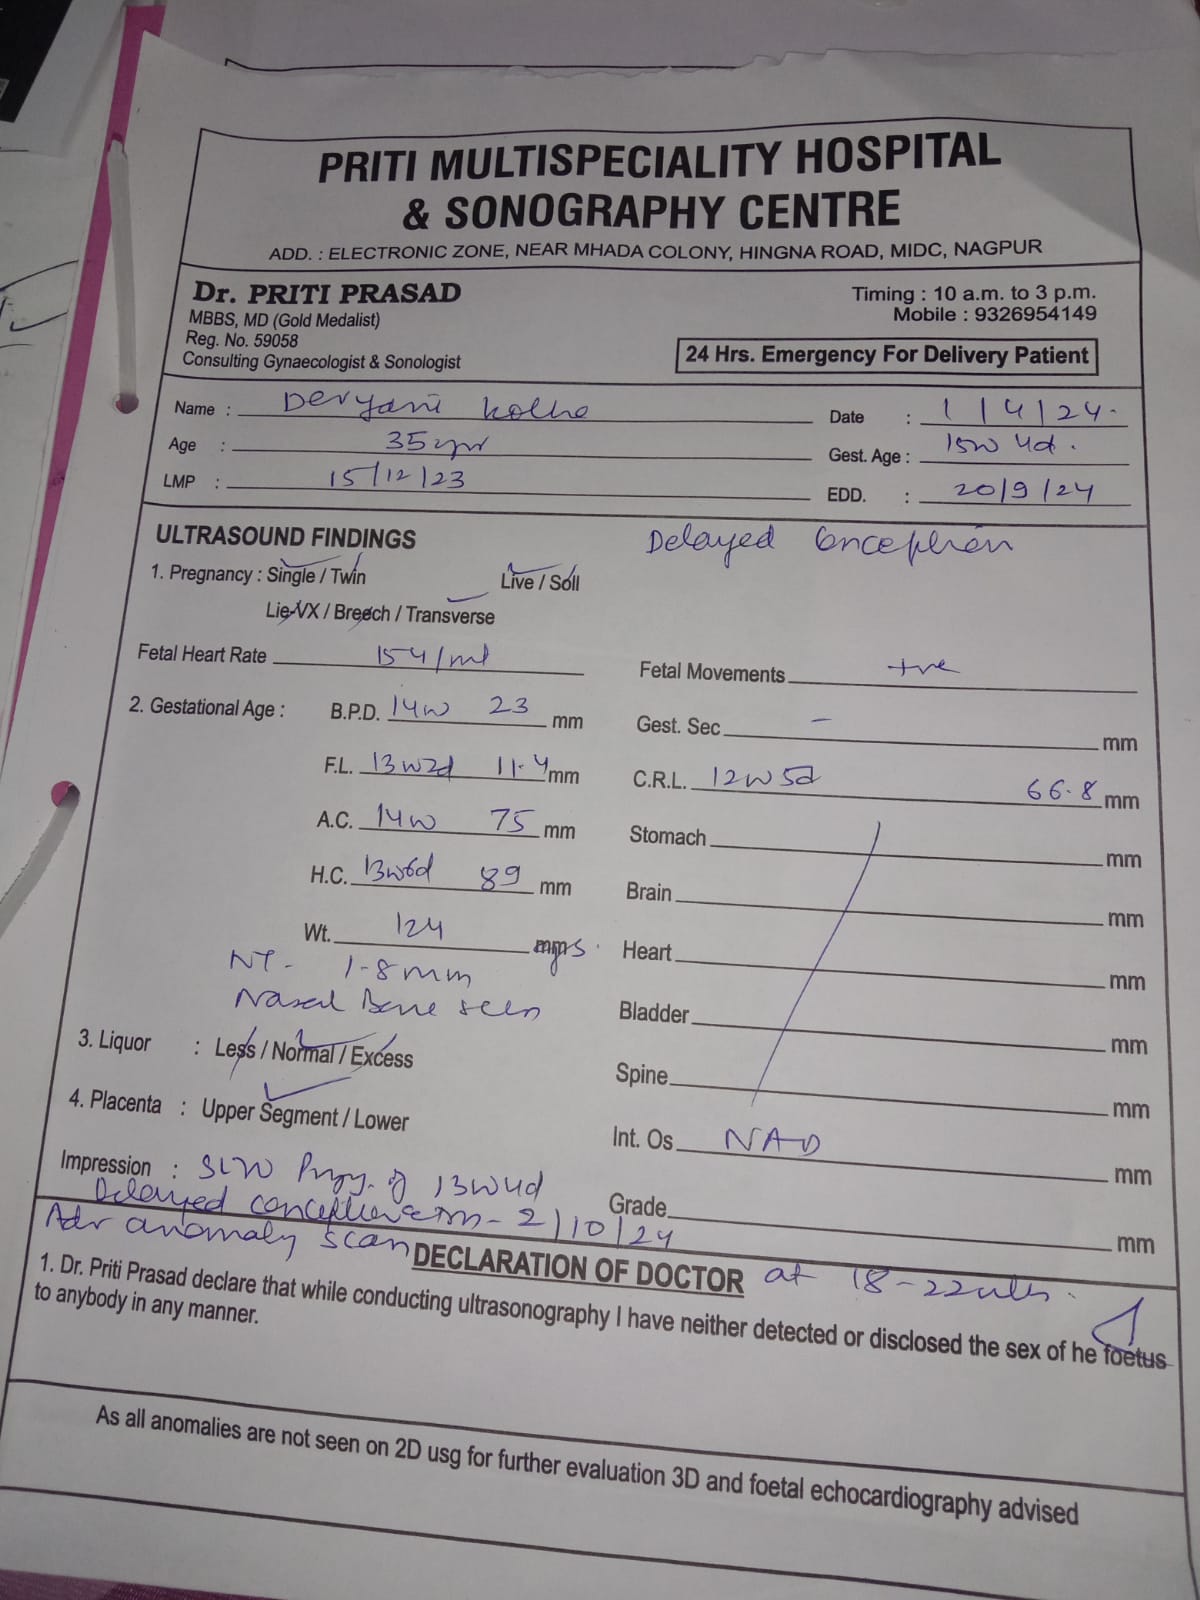 PRITI MULTISPECIALITY HOSPITAL
& SONOGRAPHY CENTRE
ADD. : ELECTRONIC ZONE, NEAR MHADA COLONY, HINGNA ROAD, MIDC, NAGPUR
Dr. PRITI PRASAD
MBBS, MD (Gold Medalist)
Reg. No. 59058
Consulting Gynaecologist & Sonologist
Timing : 10 a.m. to 3 p.m.
Mobile : 9326954149
24 Hrs. Emergency For Delivery Patient
Name : Devyani Kolhe
Date : 1/4/24.
Age : 35 yr
Gest. Age : 15w 4d.
LMP : 15/12/23
EDD. : 20/9/24
ULTRASOUND FINDINGS
Delayed Conception
1. Pregnancy : Single / Twin Live / Soll
Lie-VX / Breech / Transverse
Fetal Heart Rate 154/mt
Fetal Movements +ve
2. Gestational Age : B.P.D. 14w 23 mm
Gest. Sec - mm
F.L. 13w2d 11.4 mm
C.R.L. 12w5d 66.8 mm
A.C. 14w 75 mm
Stomach mm
H.C. 13w6d 89 mm
Brain mm
Wt. 124 gms.
Heart mm
NT - 1.8mm
Nasal Bone seen
Bladder mm
3. Liquor : Less / Normal / Excess
Spine mm
4. Placenta : Upper Segment / Lower
Int. Os NAD mm
Impression : SLIU Pregy. of 13w4d
Grade mm
Delayed conception 2/10/24
Adv anomaly scan at 18-22wks.
DECLARATION OF DOCTOR
1. Dr. Priti Prasad declare that while conducting ultrasonography I have neither detected or disclosed the sex of he foetus
to anybody in any manner.
As all anomalies are not seen on 2D usg for further evaluation 3D and foetal echocardiography advised